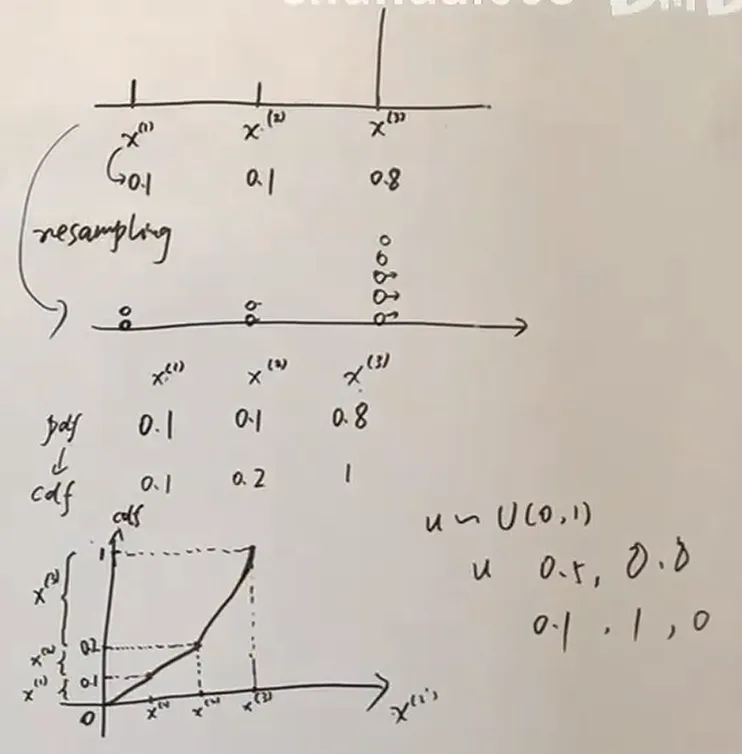 x⁽¹⁾ x⁽²⁾ x⁽³⁾
0.1 0.1 0.8
resampling
x⁽¹⁾ x⁽²⁾ x⁽³⁾
pdf 0.1 0.1 0.8
cdf 0.1 0.2 1
cdf
u ~ U(0,1)
1
u 0.5, 0.8
x⁽³⁾
0.1 , 1 , 0
0.2
x⁽²⁾
0.1
x⁽¹⁾
0 x⁽¹⁾ x⁽²⁾ x⁽³⁾ x⁽ⁱ⁾